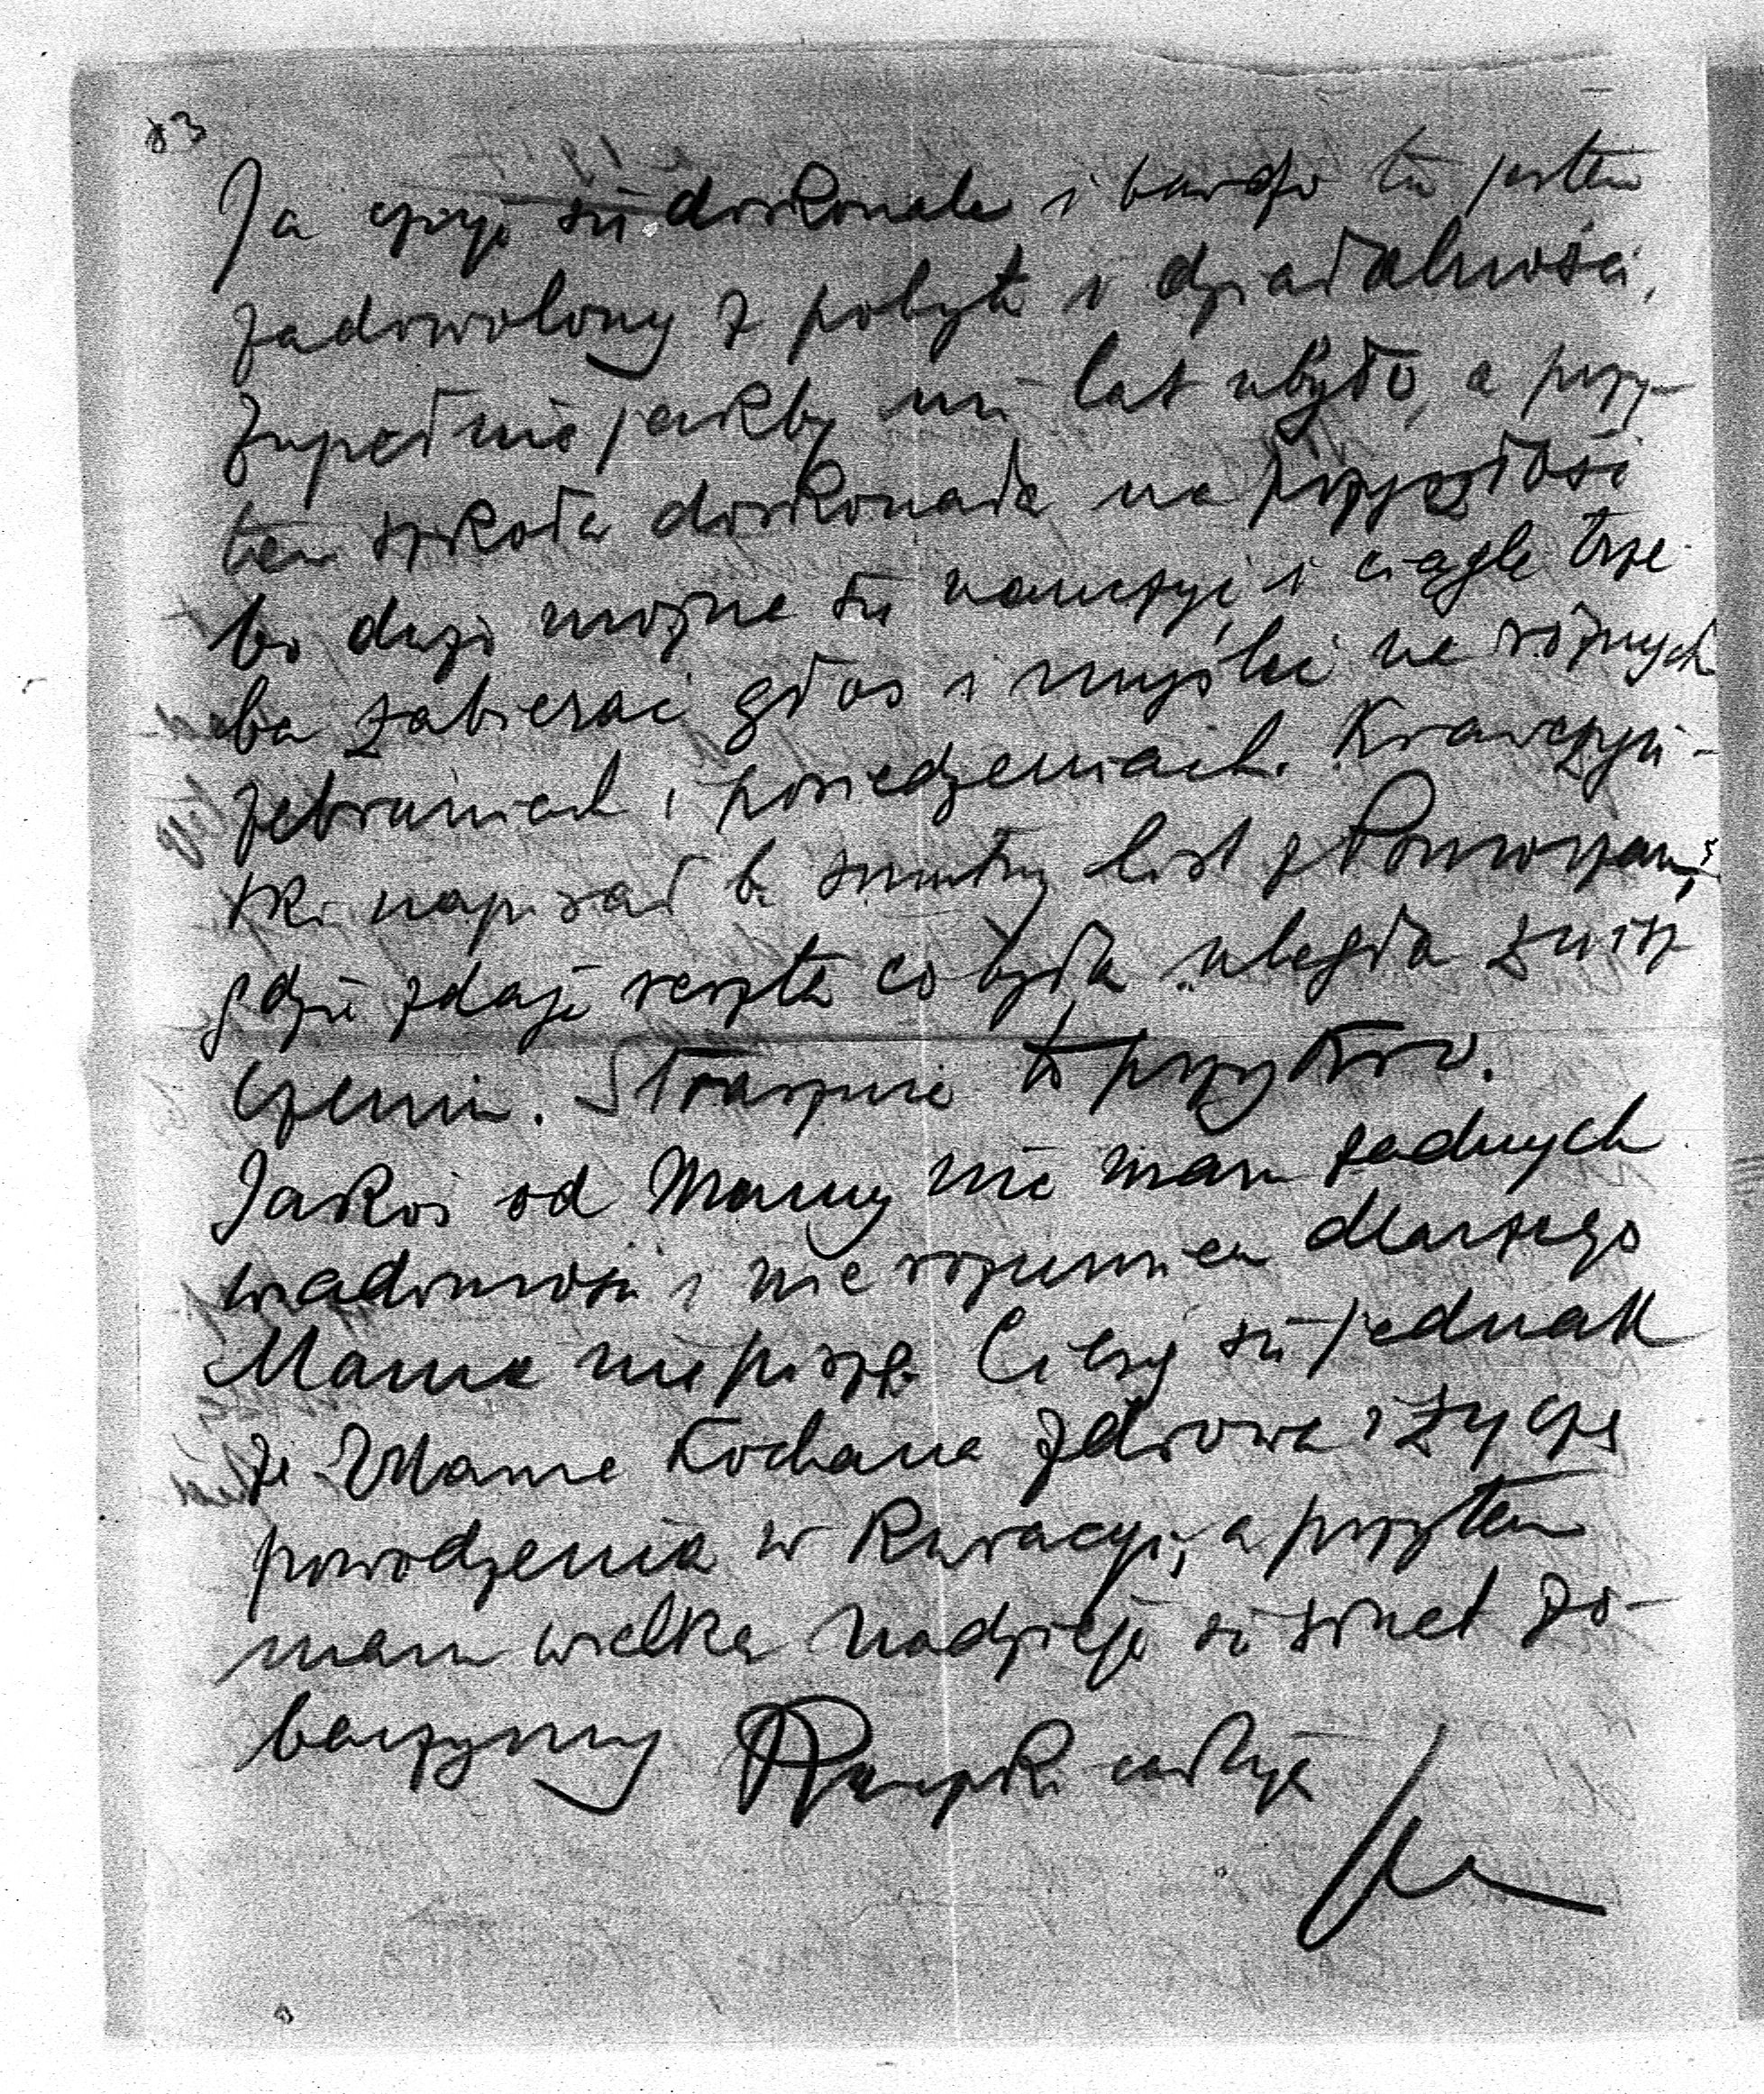 83
Ja czuję się doskonale i bardzo tu jestem
zadowolony z pobytu i działalności,
zupełnie jakby mi lat ubyło, a przy-
tem szkoła doskonała na przyszłość
bo dużo można się nauczyć i ciągle trze
ba zabierać głos i myśleć na różnych
zebraniach i posiedzeniach. Krawczyń-
ski napisał b. smutny list z Pomorzan,
gdzie zdaje reszta co była uległa znisz
czeniu. Strasznie to przykro.
Jakoś od Mamy nie mam żadnych
wiadomości i nie rozumiem dlaczego
Mama nie pisze. Cieszę się jednak
że Mama Kochana zdrowa i życzę
powodzenia w Kuracyi, a przytem
mam wielką nadzieję że się zo-
baczymy Rączki całuję